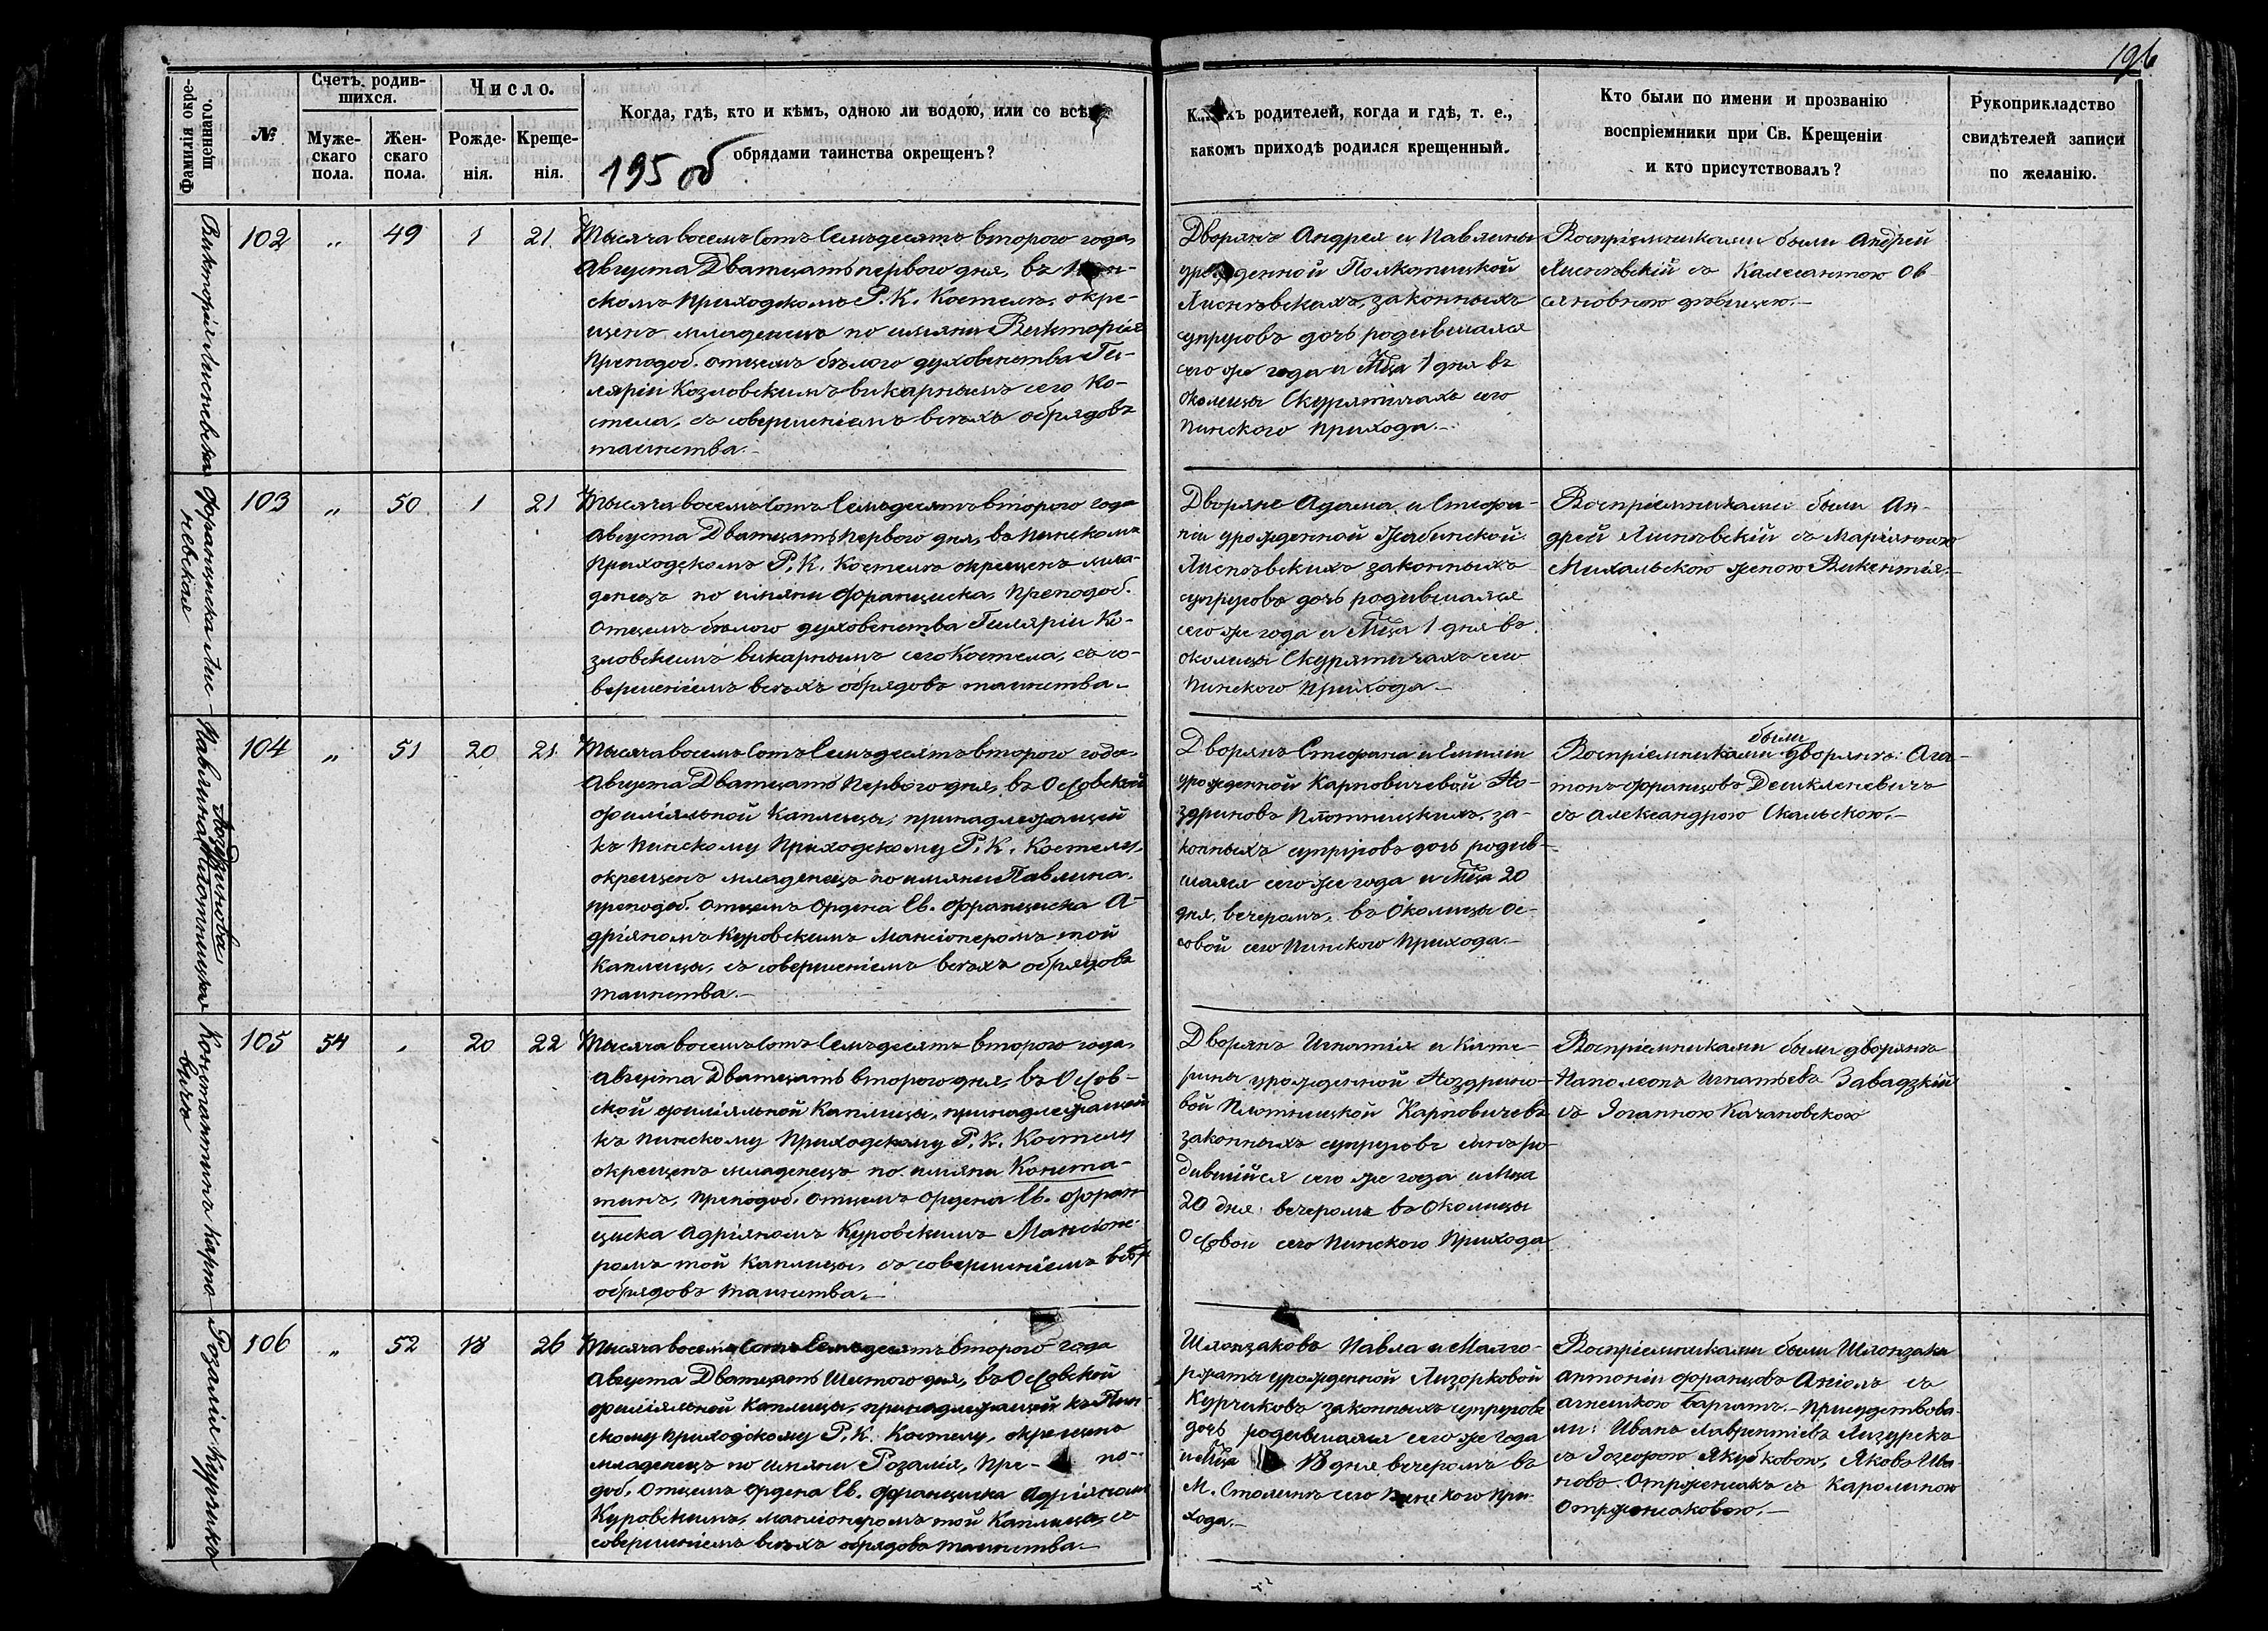 196
Фамилія окре-
щеннаго.
№
Счетъ родив-
шихся.
Муже-
скаго
пола.
Жен-
скаго
пола.
Число.
Рожде-
нія.
Креще-
нія.
Когда, гдѣ, кто и кѣмъ, одною ли водою, или со всѣ
обрядами таинства окрещенъ?
195 об
родителей, когда и гдѣ, т. е.,
какомъ приходѣ родился крещенный.
Кто были по имени и прозванію
воспріемники при Св. Крещеніи
и кто присутствовалъ?
Рукоприкладство
свидѣтелей записи
по желанію.
Викторія Лисневска
102 „ 49 1 21
Тысяча восемь Сотъ Семьдесятъ второго года
Августа Дватцать первого дня, въ
скомъ Приходскомъ Р. К. Костелѣ, окре-
щенъ младенецъ по имяни Викторія
Преподоб. отцемъ бѣлого духовенства Ги-
ляріи Козловскимъ викарнымъ сего Ко-
стела, съ совершеніемъ всѣхъ обрядовъ
таинства.-
Дворянъ Андрея и Павлины
Лиснѣвскихъ, законныхъ
супруговъ дочь родившаяся
сего же года и Мца 1 дня въ
околицы Скурятичахъ сего
Пинского Прихода.-
Воспріемниками были Андрей
Лиснѣвскій съ
дѣвицею.-
Франциска Лис-
невская
103 „ 50 1 21
Тысяча восемь Сотъ Семьдесятъ второго года
Августа Дватцать первого дня, въ Пинскомъ
Приходскомъ Р. К. Костелѣ окрещенъ мла-
денецъ по имяни Франциска, Преподоб.
Отцемъ бѣлого духовенства Гиляріи Ко-
зловскимъ викарнымъ сего Костела, съ со-
вершеніемъ всѣхъ обрядовъ таинства.-
Дворянъ Адама и Стефа-
ніи урожденной
Лиснѣвскихъ законныхъ
супруговъ дочь родившаяся
сего же года и Мца 1 дня въ
околицы Скурятичахъ сего
Пинского Прихода.-
Воспріемниками были Ан-
дрей Лиснѣвскій съ Маріянною
Михальскою женою Викентія.-
Павлина
Ноздринова
Плотницка
104 „ 51 20 21
Тысяча восемь Сотъ Семьдесятъ второго года
Августа Дватцать Первого дня, въ Осовской
филіяльной Каплицы, принадлежащей
къ Пинскому Приходскому Р. К. Костелу,
окрещенъ младенецъ по имяни Павлина,
преподоб. отцемъ Ордена Св. Франциска А-
дріяномъ Куровскимъ Мансіонеромъ той
Каплицы, съ совершеніемъ всѣхъ обрядовъ
таинства.-
Дворянъ Стефана и Емиліи
урожденной Карповичевой Но-
здриновъ Плотницкихъ, за-
конныхъ супруговъ дочь родив-
шаяся сего же года и Мца 20
дня, вечеромъ, въ Околицы Ос-
овой сего Пинского Прихода.-
были
Воспріемниками дворянъ: Ага-
тонъ Францовъ
съ Александрою Скальскою.-
Константинъ Карпо
вичъ
105 54 „ 20 22
Тысяча восемь Сотъ Семьдесятъ второго года,
Августа Дватцать второго дня, въ Осов-
ской филіяльной Каплицы, принадлежащей
къ Пинскому Приходскому Р. К. Костелу
окрещенъ младенецъ по имяни Конста-
тинъ, преподоб. отцемъ Ордена Св. Фран
циска Адріяномъ Куровскимъ Мансіоне-
ромъ той Каплицы, съ совершеніемъ всѣхъ
обрядовъ таинства.-
Дворянъ Игнатія и Кате-
рины урожденной Ноздрино-
вой Плотницкой Карповичевъ
законныхъ супруговъ сынъ ро-
дившійся сего же года и Мца
20 дня вечеромъ въ Околицы
Осовой сего Пинского Прихода
Воспріемниками были дворянъ
Наполеонъ Игнатьевъ Завадзкій
съ Іоганною Качановскою
Розалія Курчико
106 „ 52 18 26
Тысяча восемь Сотъ Семьдесятъ второго года
Августа Дватцать Шестого дня, въ Осовской
филіяльной Каплицы, принадлежащей къ Пин-
скому Приходскому Р. К. Костелу, окрещено
младенецъ по имяни Розалія, Пре- по-
доб. Отцемъ Ордена Св. Франциска Адріяномъ
Куровскимъ, мансіонеромъ той Каплицы, съ
совершеніемъ всѣхъ обрядовъ таинства.-
Шляхцаковъ Павла и Малго-
ржаты урожденной Лизорковой
Курчиковъ законныхъ супруговъ
дочь родившаяся сего же года
и Мца 18 дня вечеромъ въ
М. Столинѣ сего Пинского При-
хода.-
Воспріемниками были
Антоній Францовъ съ
Агнешкою Присудствова-
ли: Иванъ Лаврентіевъ Лизурекъ
съ Іозефою Якубковою, Яковъ Ива-
новъ съ Каролиною